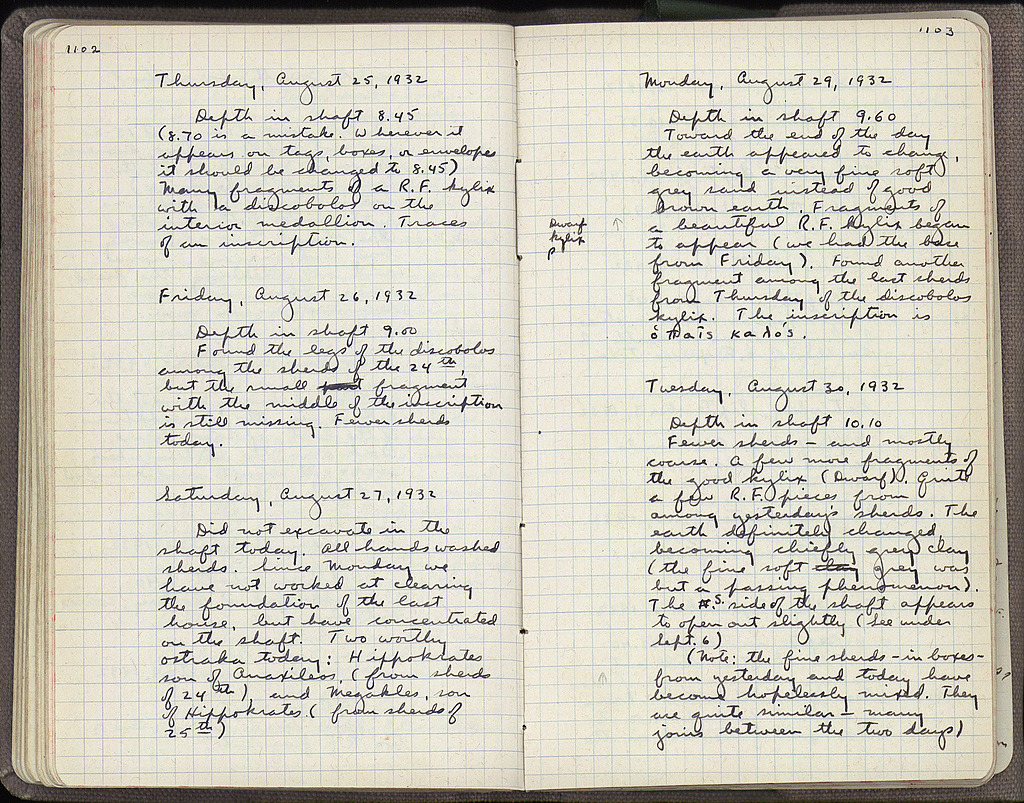 1102
Thursday, August 25, 1932
Depth in shaft 8.45
(8.70 is a mistake. Wherever it
appears on tags, boxes, or envelopes
it should be changed to 8.45)
Many fragments of a R.F. kylix
with a discobolos on the
interior medallion. Traces
of an inscription.
Friday, August 26, 1932
Depth in shaft 9.00
Found the legs of the discobolos
among the sherds of the 24th,
but the small fragment
with the middle of the inscription
is still missing. Fewer sherds
today.
Saturday, August 27, 1932
Did not excavate in the
shaft today. All hands washed
sherds. Since Monday we
have not worked at clearing
the foundation of the last
house, but have concentrated
on the shaft. Two worthy
ostraka today: Hippokrates
son of Anaxileos, (from sherds
of 24th), and Megakles, son
of Hippokrates. (from sherds of
25th)
1103
Monday, August 29, 1932
Depth in shaft 9.60
Toward the end of the day
the earth appeared to change,
becoming a very fine soft
grey sand instead of good
brown earth. Fragments of
a beautiful R.F. kylix began
to appear (we had the base
from Friday). Found another
fragment among the last sherds
from Thursday of the discobolos
kylix. The inscription is
ὁ παῖς καλός.
Dwarf
kylix
P
Tuesday, August 30, 1932
Depth in shaft 10.10
Fewer sherds – and mostly
coarse. A few more fragments of
the good kylix (Dwarf). Quite
a few R.F. pieces from
among yesterday's sherds. The
earth definitely changed,
becoming chiefly grey clay
(the fine soft clay grey was
but a passing phenomenon).
The S. side of the shaft appears
to open out slightly (see under
Sept. 6)
(Note: the fine sherds – in boxes –
from yesterday and today have
become hopelessly mixed. They
are quite similar – many
joins between the two days)